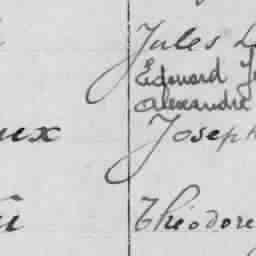 Jules
Edouard
Alexandre
ux Joseph
Théodore